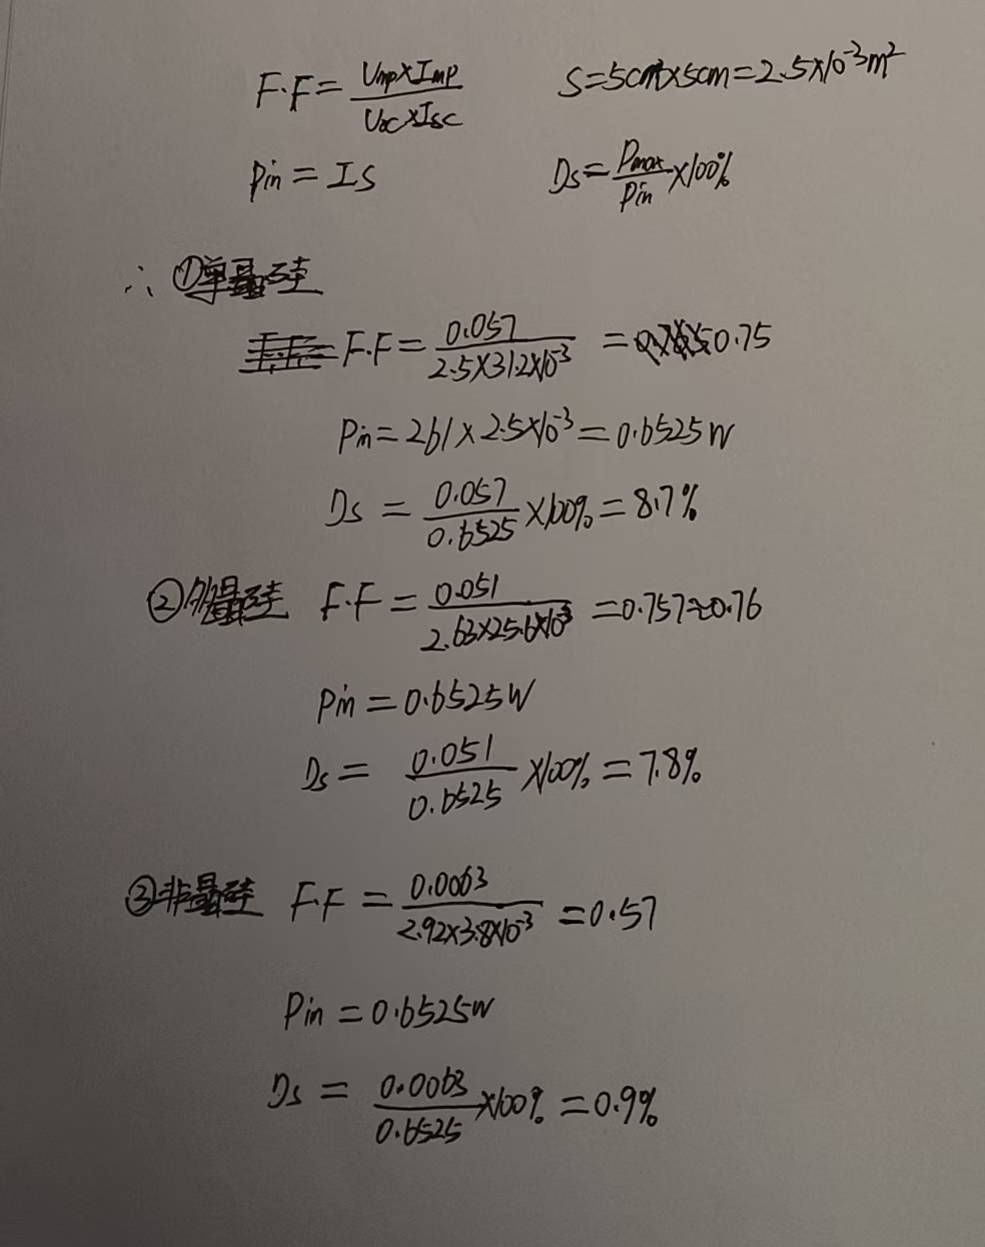 F.F = (Ump×Imp)/(Uoc×Isc) S=5cm×5cm=2.5×10⁻³m²
Pin = IS Ds = Pmax/Pin ×100%
∴ ①单晶硅
F.F = 0.057/(2.5×31.2×10⁻³) = 0.75
Pin = 261×2.5×10⁻³ = 0.6525W
Ds = 0.057/0.6525 ×100% = 8.7%
②多晶硅 F.F = 0.051/(2.63×25.6×10⁻³) = 0.757≈0.76
Pin = 0.6525W
Ds = 0.051/0.6525 ×100% = 7.8%
③非晶硅 F.F = 0.0063/(2.92×3.8×10⁻³) = 0.57
Pin = 0.6525W
Ds = 0.0063/0.6525 ×100% = 0.9%